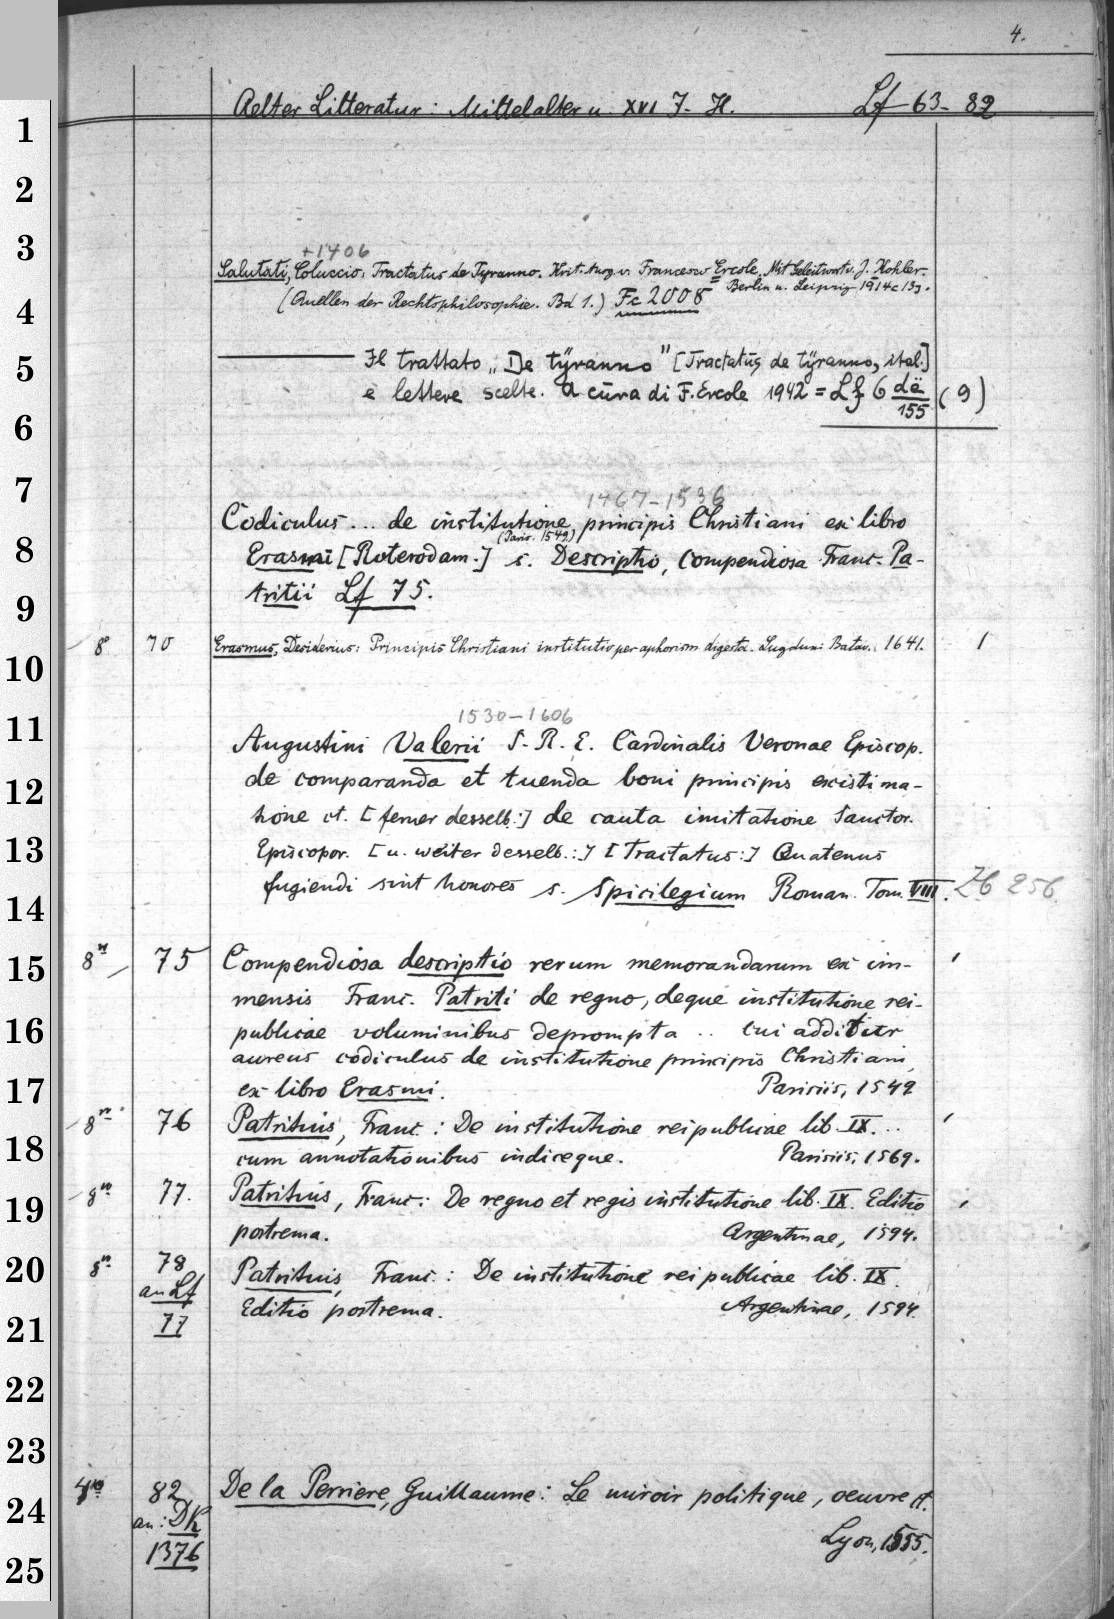 4.
Aelter Litteratur: Mittelalter u. XVI J. H. Lf 63-82
+1406
Salutati, Coluccio: Tractatus de Tyranno. Krit. Ausg. v. Francesco Ercole. Mit Geleitwort v. J. Kohler.
Berlin u. Leipzig 1914
(Quellen der Rechtsphilosophie. Bd 1.) Fc 2008
Il trattato „De tyranno" [Tractatus de tyranno, ital.]
e lettere scelte. A cura di F. Ercole 1942 = Lf 6 de/155 (9)
1467-1536
Codiculus ... de institutione principis Christiani ex libro
(Paris. 1549)
Erasmi [Roterodam.] s. Descriptio, Compendiosa Franc. Pa-
tritii Lf 75.
8 70 Erasmus, Desiderius: Principis Christiani institutio per aphorism digesta. Lugduni Batav. 1641. 1
1530-1606
Augustini Valerii S. R. E. Cardinalis Veronae Episcop.
de comparanda et tuenda boni principis existima-
tione et. [ferner desselb.:] de cauta imitatione Sanctor.
Episcopor. [u. weiter desselb.:] [Tractatus:] Quatenus
fugiendi sint honores s. Spicilegium Roman. Tom. VIII. Zb 256
8° 75 Compendiosa descriptio rerum memorandarum ex im-
mensis Franc. Patriti de regno, deque institutione rei-
publicae voluminibus deprompta .. cui additur
aureus codiculus de institutione principis Christiani
ex libro Erasmi. Parisiis, 1549
8° 76 Patritius, Franc.: De institutione reipublicae lib. IX. ..
cum annotationibus indiceque. Parisiis, 1569.
8° 77. Patritius, Franc: De regno et regis institutione lib. IX. Editio
postrema. Argentinae, 1594.
8° 78 Patritius, Franc.: De institutione reipublicae lib. IX.
an Lf
Editio postrema. Argentinae, 1594.
77
4° 82 De la Perriere, Guillaume: Le miroir politique, oeuvre et.
an: Dk
Lyon, 1555.
1376
1
2
3
4
5
6
7
8
9
10
11
12
13
14
15
16
17
18
19
20
21
22
23
24
25